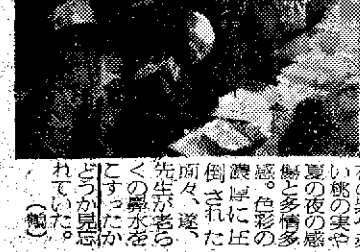 い桃の実や
夏の夜の感
傷と多情多
感。色彩の
濃厚に圧
倒された
遂、
先生が老ら
くの鼻水を
こすったか
どうか見忘
れていた。